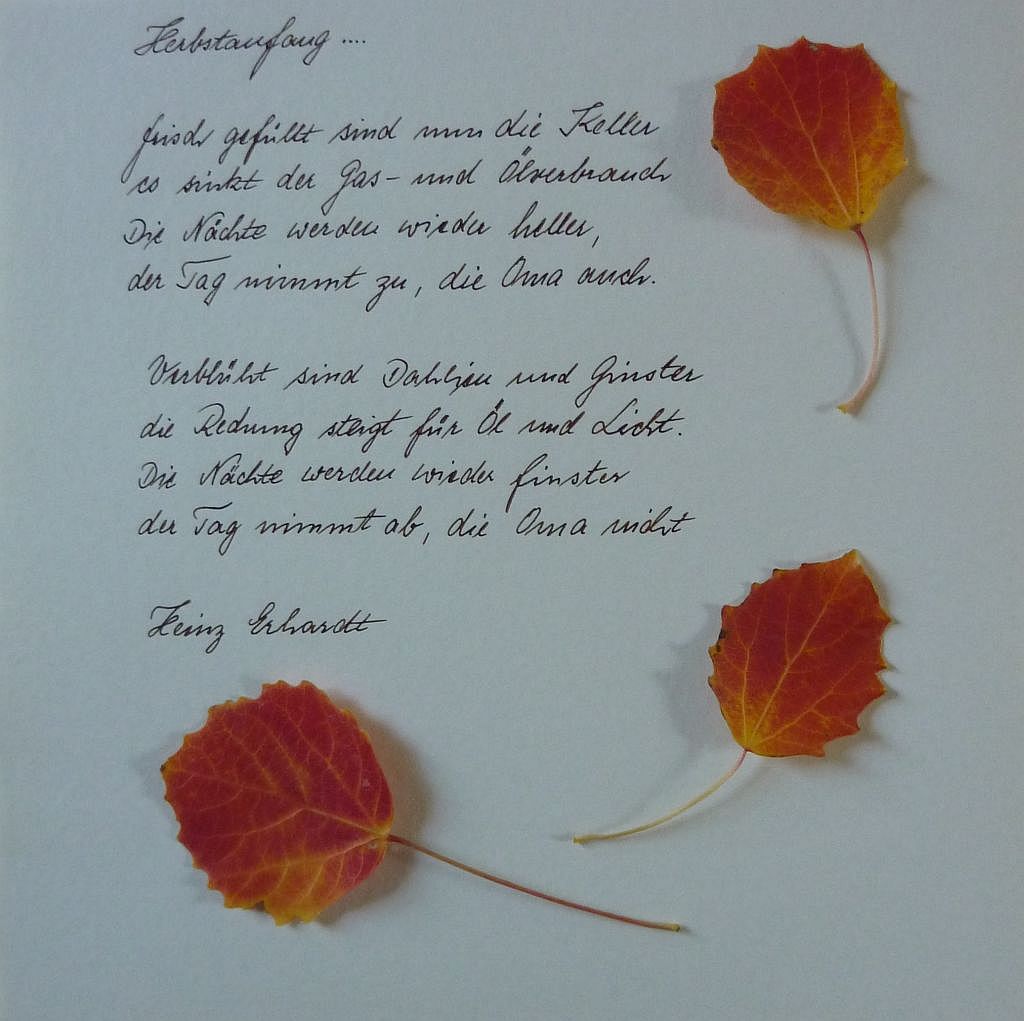 Herbstanfang ....
frisch gefüllt sind nun die Keller
es sinkt der Gas- und Ölverbrauch
Die Nächte werden wieder heller,
der Tag nimmt zu, die Oma auch.
Verblüht sind Dahlien und Ginster
die Rechnung steigt für Öl und Licht.
Die Nächte werden wieder finster
der Tag nimmt ab, die Oma nicht
Heinz Erhardt